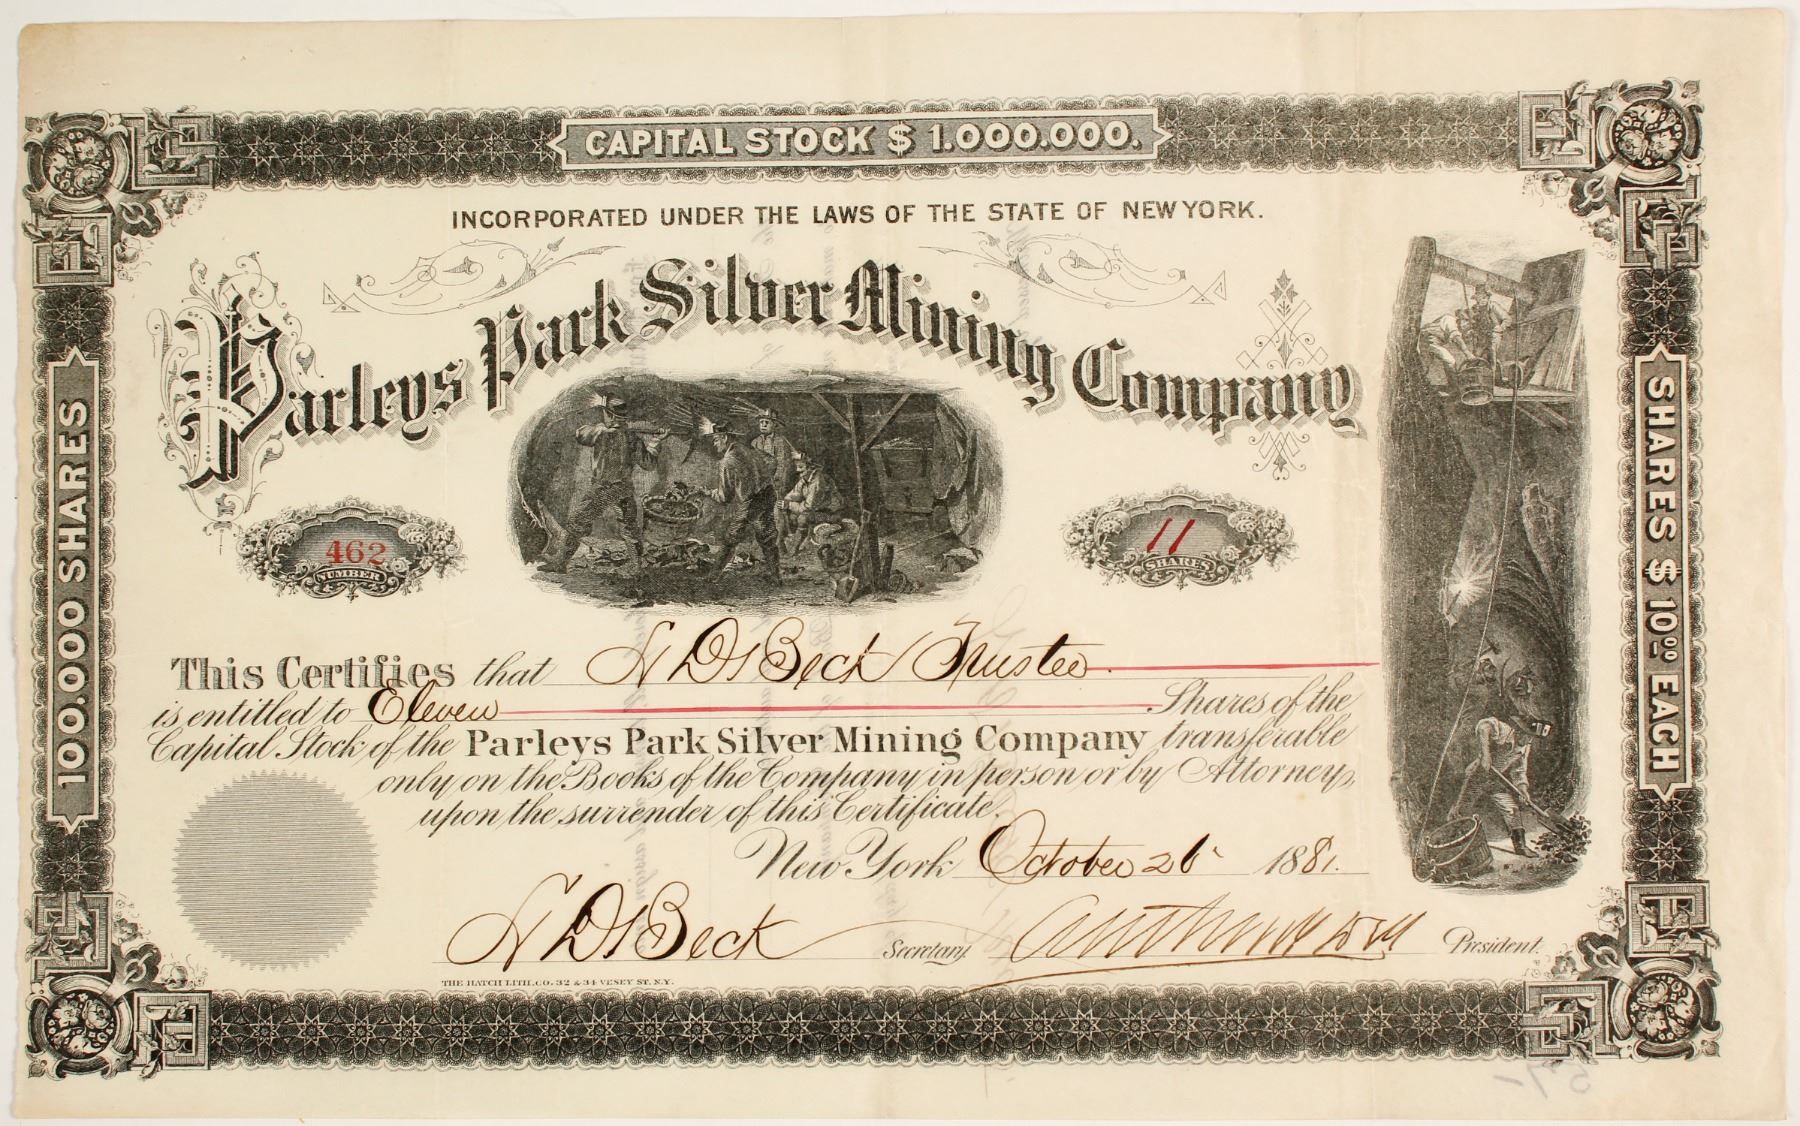 CAPITAL STOCK $ 1.000.000.
INCORPORATED UNDER THE LAWS OF THE STATE OF NEW YORK.
Parleys Park Silver Mining Company
100.000 SHARES
SHARES $ 10.00 EACH
462
NUMBER
11
SHARES
This Certifies that Beck Trustee
is entitled to Eleven Shares of the
Capital Stock of the Parleys Park Silver Mining Company transferable
only on the Books of the Company in person or by Attorney,
upon the surrender of this Certificate.
New York October 26 1881.
Beck Secretary. President.
THE HATCH LITH. CO. 32 & 34 VESEY ST. N.Y.